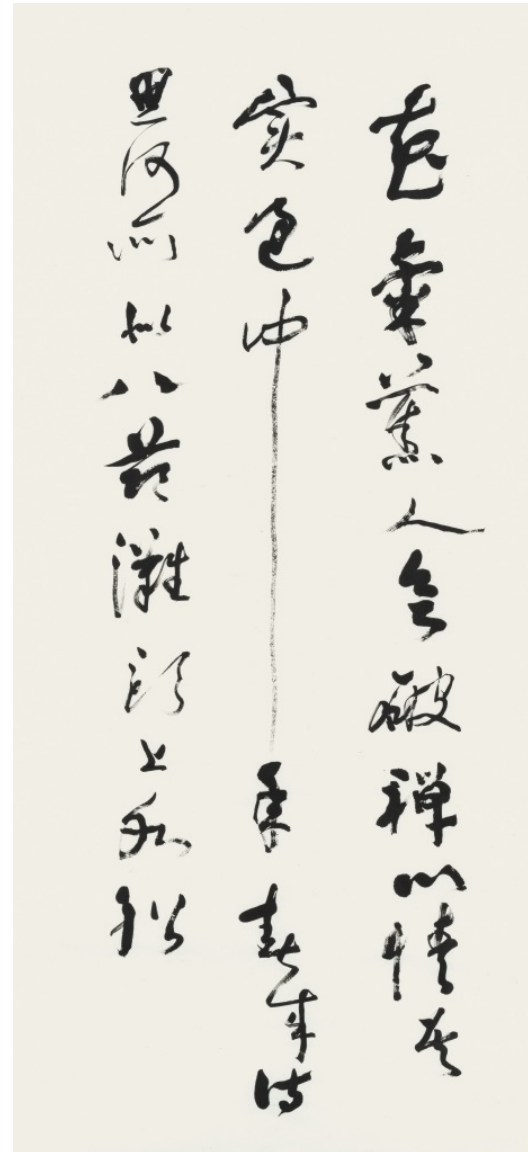 花氣薰人欲破禪心情其
實過中年春來詩
思何所似八節灘頭上水船